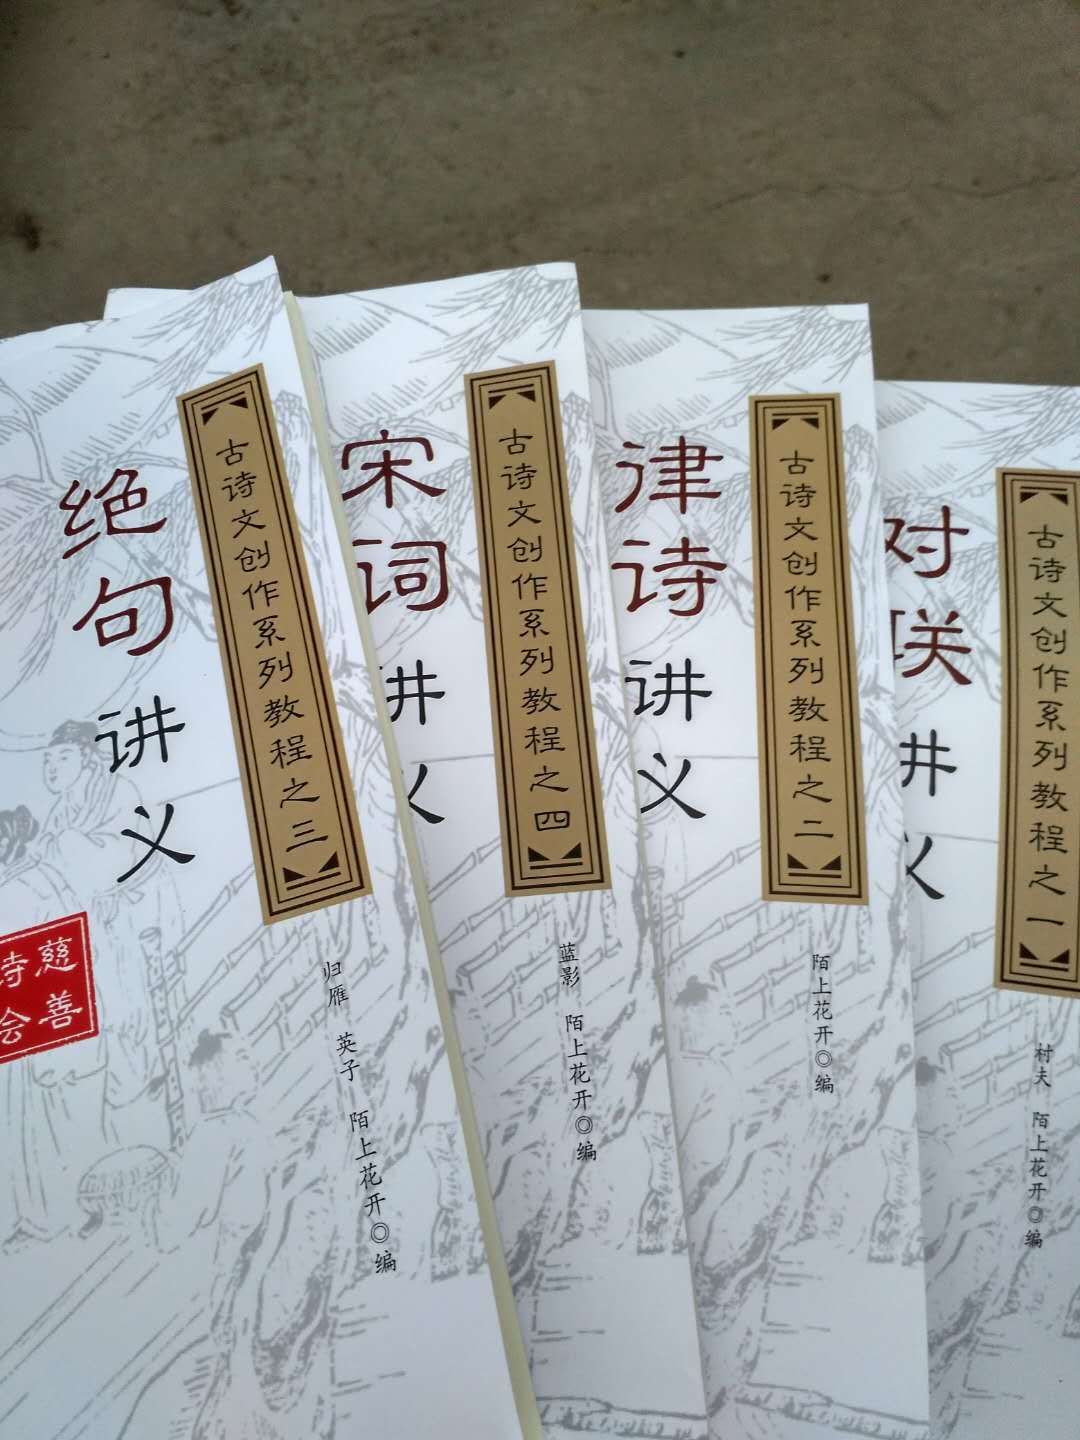 绝句讲义
古诗文创作系列教程之三
归雁 英子 陌上花开◎编
慈善
诗会
宋词讲义
古诗文创作系列教程之四
蓝影 陌上花开◎编
律诗讲义
古诗文创作系列教程之二
陌上花开◎编
对联讲义
古诗文创作系列教程之一
村夫 陌上花开◎编